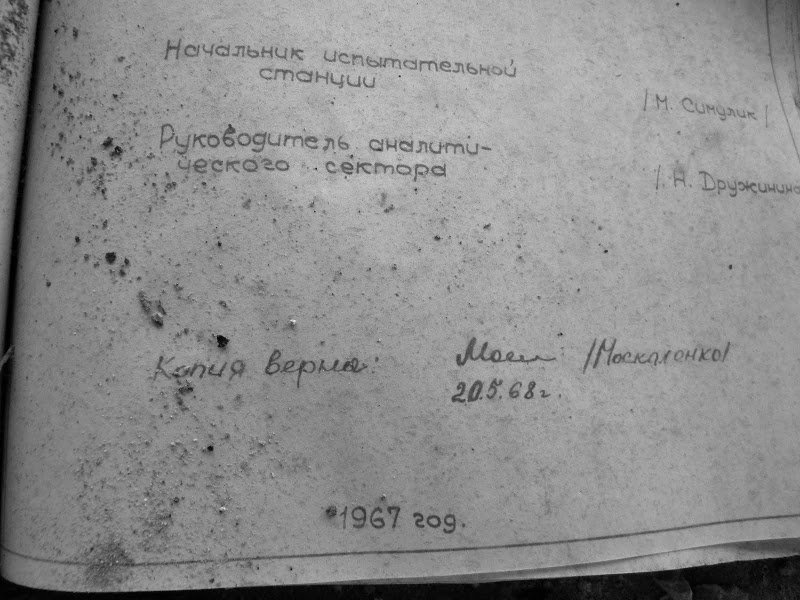 Начальник испытательной
станции
/М. Симулик/
Руководитель аналити-
ческого сектора
/. Н. Дружинина
Копия верна:
/Москаленко/
20.5.68г.
1967 год.